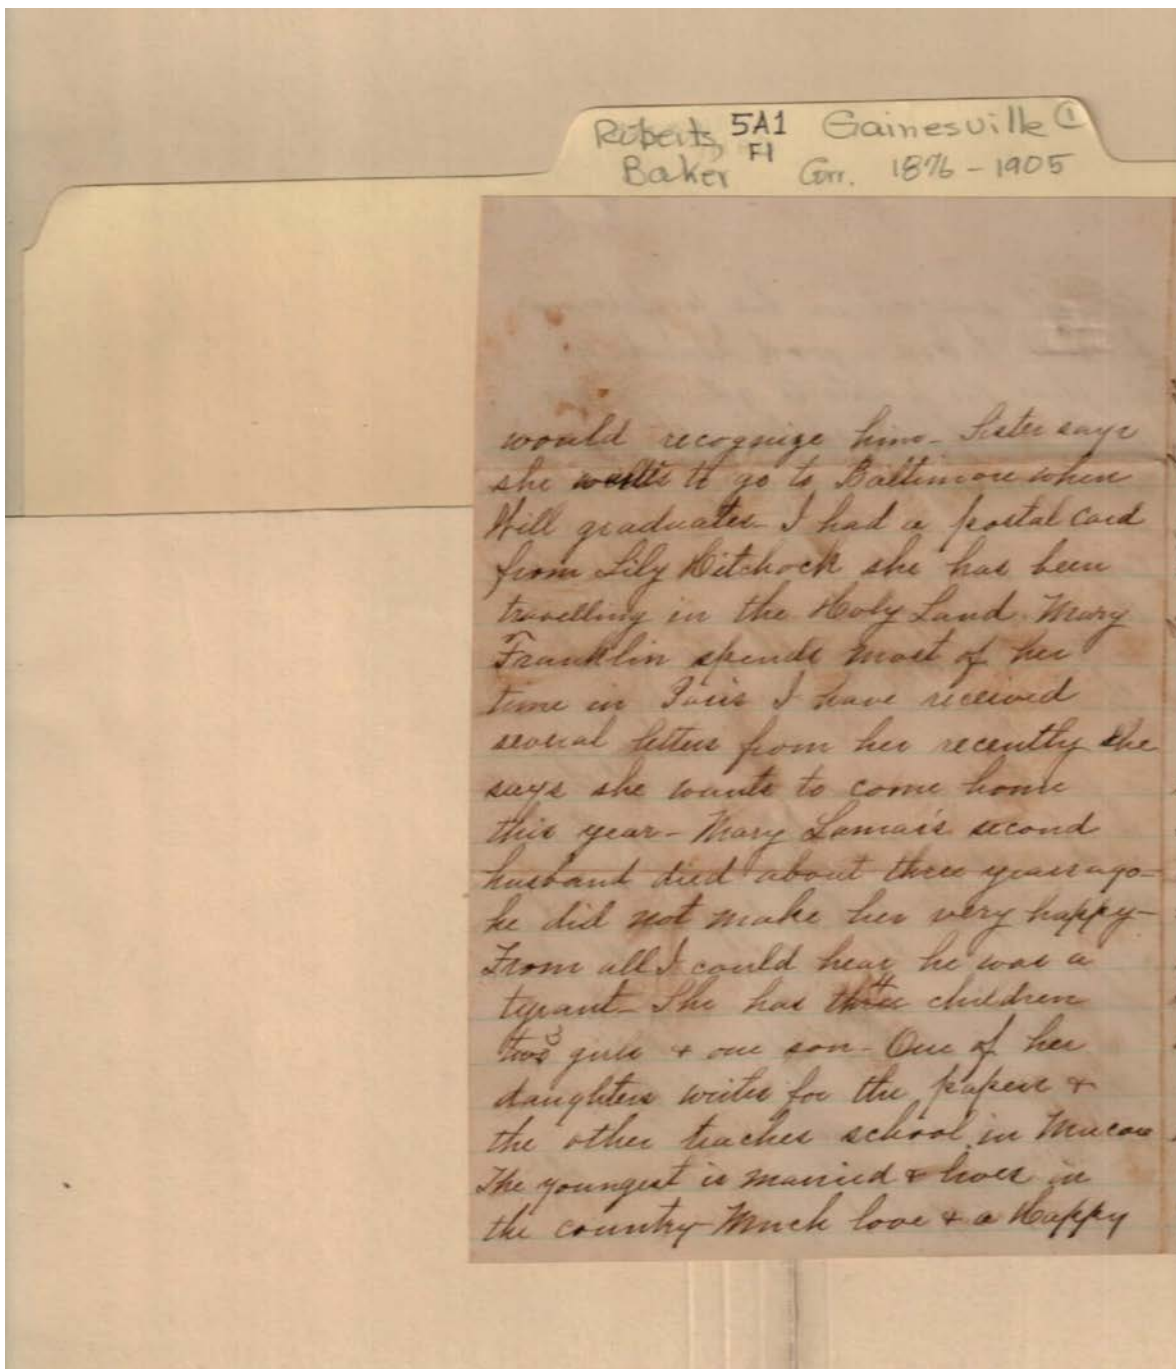 Roberts, 5A1 Gainesville 1
Baker F1 Corr. 1876 - 1905
would recognize him - Sister says
she wants to go to Baltimore when
Will graduates - I had a postal card
from Lily Hitchock she has been
travelling in the Holy Land. Mary
Franklin spends most of her
time in Paris I have received
several letters from her recently she
says she wants to come home
this year - Mary Lamar's second
husband died about three years ago -
he did not make her very happy -
From all I could hear he was a
tyrant - She has 4 children
3 girls + one son - One of her
daughters writes for the papers +
the other teaches school in Macon
The youngest is married + lives in
the country - Much love + a Happy